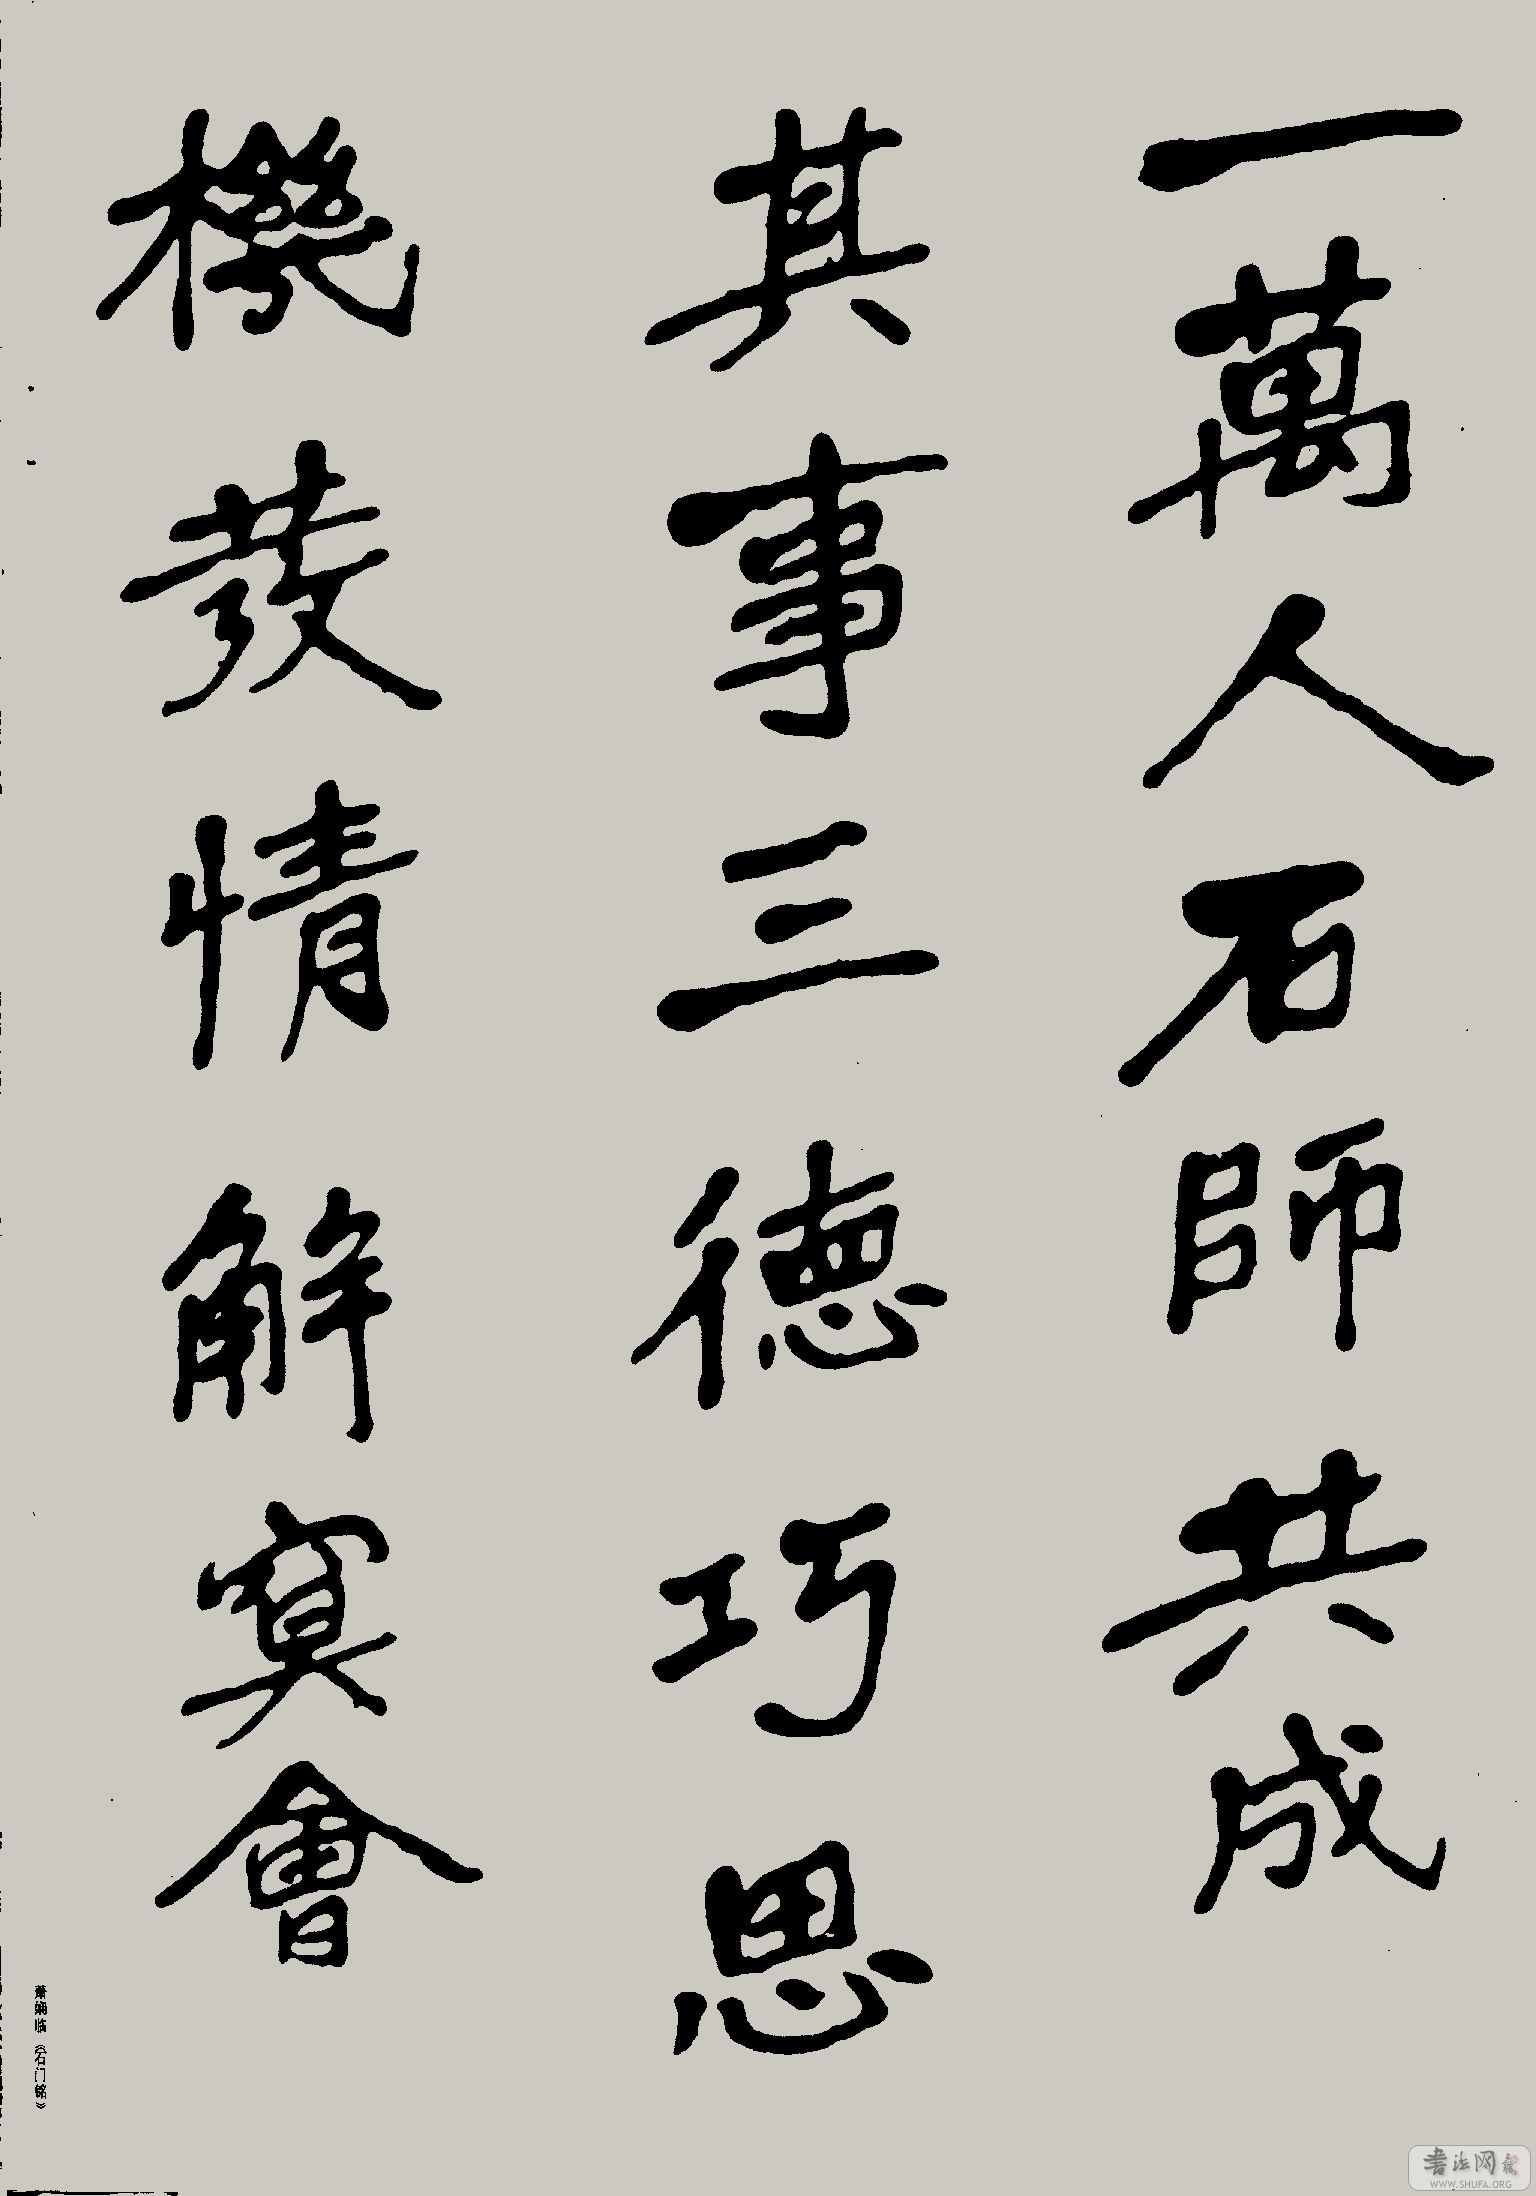 一萬人石師共成
其事三德巧思
機發情解冥會
萧娴临《石门铭》
书法网
WWW.SHUFA.ORG